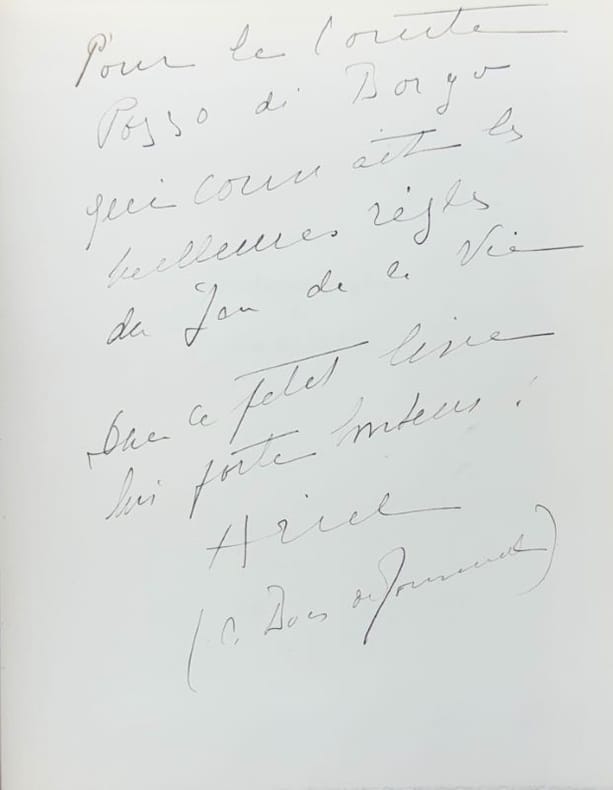 Pour le Comte
Pozzo di Borgo
qui connait les
meilleures règles
du Jeu de la Vie
Que ce petit livre
lui porte bonheur!
Ariel
(